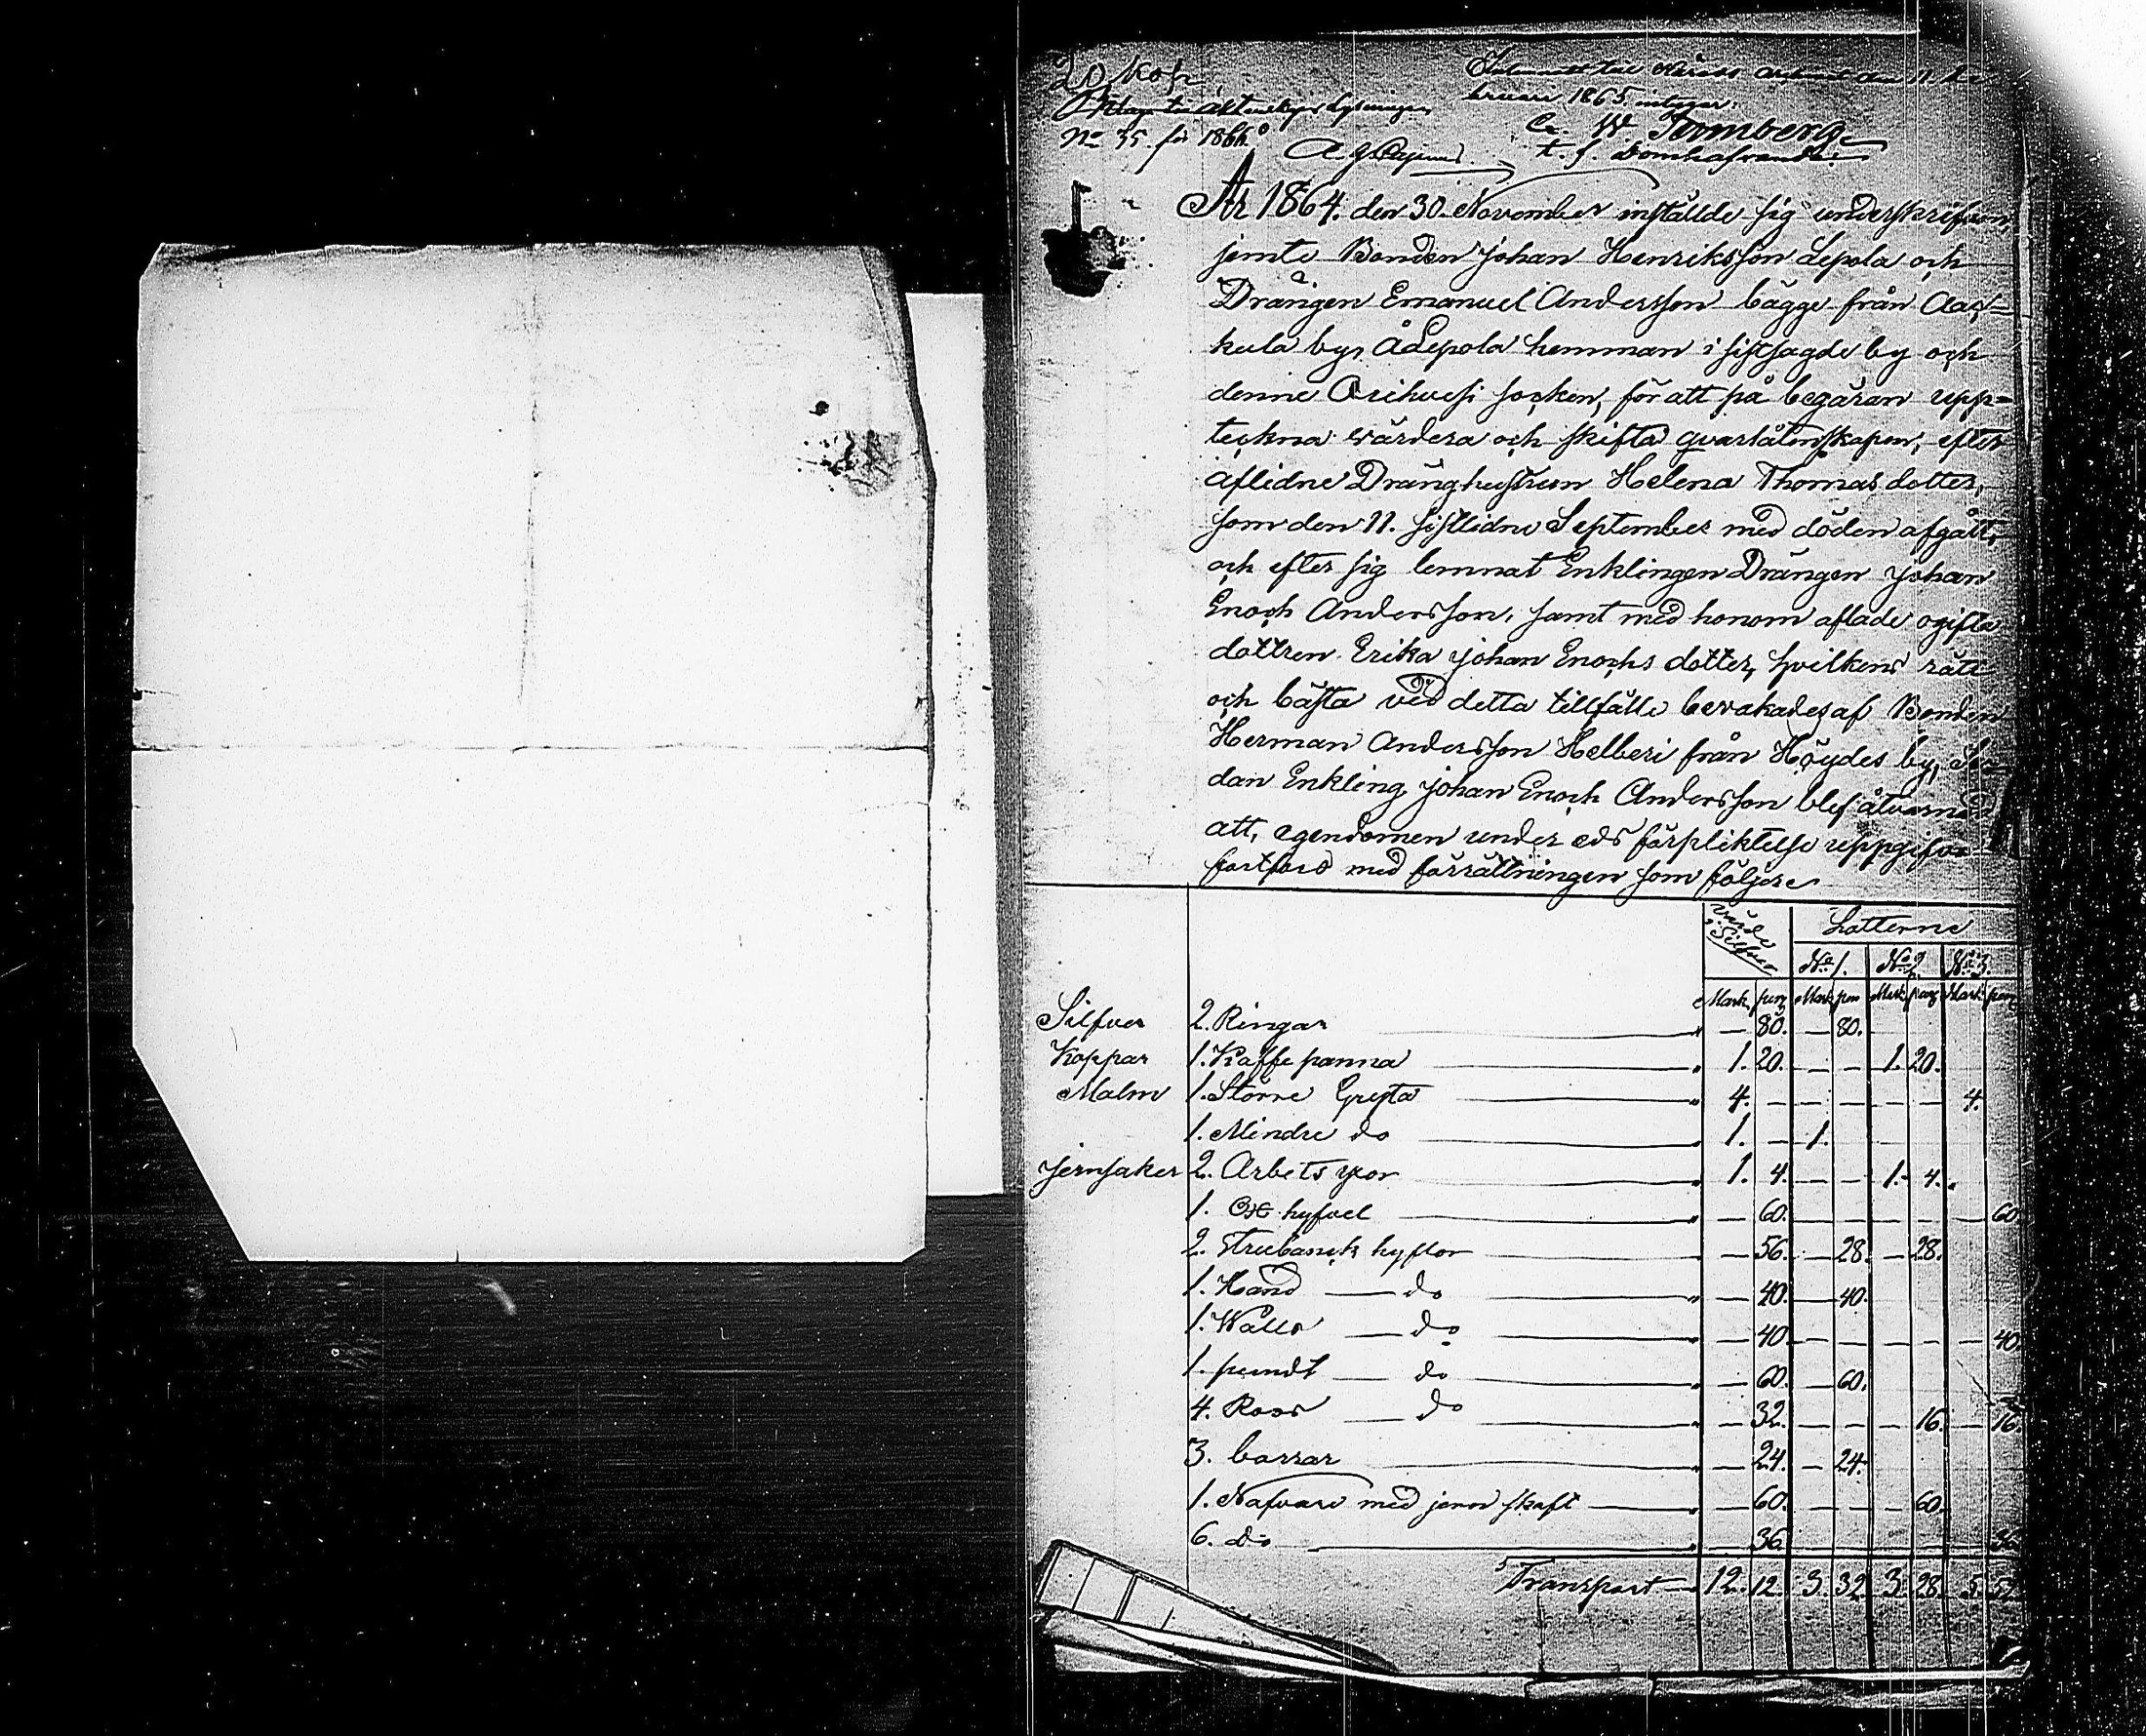 20 kop
Inlemnadt till Härads den 11.
bruari 1865, intygar:
N:o 35. för 1866.
C. W Tammberg
t. f. Domhafvande.
År 1864. den 30. November inställde sig underskrifven,
jemte Bonden Johan Henriksson Lepola och
Drängen Emanuel Andersson bägge från Aas-
kula by, å Lepola hemman i sistsagde by och
denne Orihvesi socken, för att på begäran upp-
teckna värdera och skifta qvarlåtenskapen, efter
aflidne Dränghustrun Helena Thomasdotter,
som den 11. sistlidne September med döden afgått,
och efter sig lemnat Enklingen Drängen Johan
Enoch Andersson, samt med honom aflade ogifta
dottren Erika Johan Enochs dotter, hvilkens rätt
och bästa vid detta tillfälle bevakades af Bonden
Herman Andersson Helberi från Höydes by, Se-
dan Enkling Johan Enoch Andersson blef åtvarnad
att, egendomen under eds förpliktelse uppgifva
fortfors med förrättningen som följer
Värde Silfver Lotterne
N:o 1. N:o 2. N:o 3.
Mark penj Mark pen Mark penj Mark pen
Silfver 2. Ringar " — 80. — 80.
Koppar 1. Kaffe panna " 1. 20. — — 1. 20.
Malm 1. Större Gryta " 4. — — — — — 4.
1. Mindre do " 1. — 1.
Jernsaker 2. Arbets yxor " 1. 4. — — 1. 4.
1. Ox hyfvel " — 60. — — — — — 60.
2. Strubanck hyflor " — 56. — 28. — 28.
1. Hand — do " — 40. — 40.
1. Walls — do " — 40. — — — — — 40.
1. pundt — do " — 60. — 60.
4. Roos — do " — 32. — — — 16. — 16.
3. borrar " — 24. — 24.
1. Nafvare med jern skaft " — 60. — — — 60.
6. do " 36 36
Transport 12. 12 3. 32 3. 28. 5. 52.